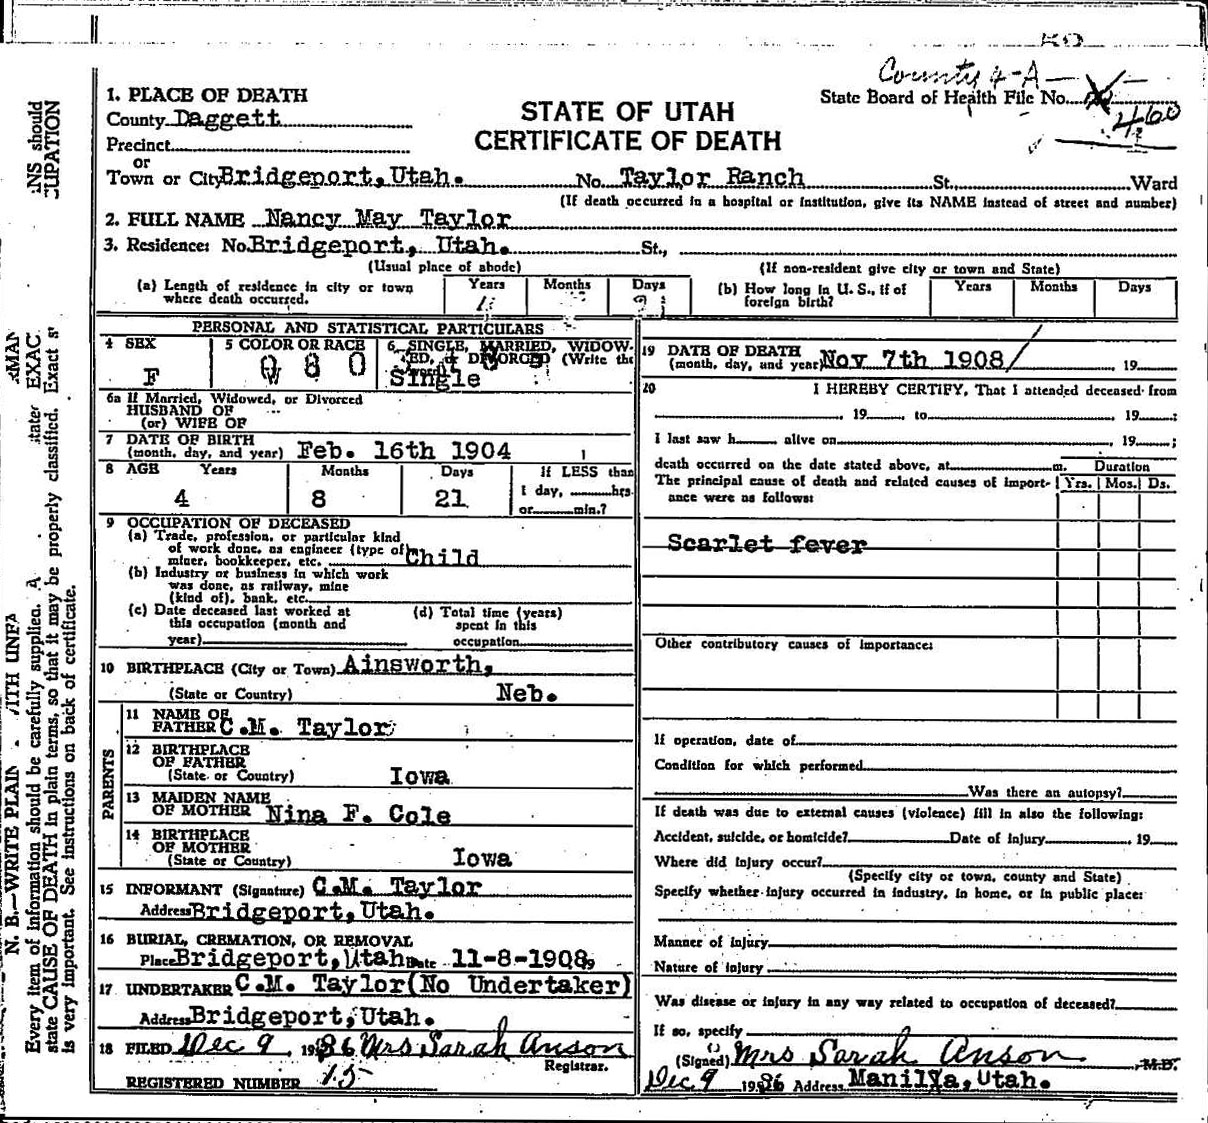 County 4-A-
State Board of Health File No.
460
1. PLACE OF DEATH
County Daggett
STATE OF UTAH
CERTIFICATE OF DEATH
Precinct
or
Town or City Bridgeport, Utah. No. Taylor Ranch St., Ward
(If death occurred in a hospital or institution, give its NAME instead of street and number)
2. FULL NAME Nancy May Taylor
3. Residence: No. Bridgeport, Utah. St.,
(Usual place of abode) (If non-resident give city or town and State)
(a) Length of residence in city or town where death occurred. Years Months Days
(b) How long in U. S., if of foreign birth? Years Months Days
PERSONAL AND STATISTICAL PARTICULARS
4 SEX F
5 COLOR OR RACE W
080
6 SINGLE, MARRIED, WIDOWED, or DIVORCED (Write the word)
Single
6a If Married, Widowed, or Divorced
HUSBAND OF
(or) WIFE OF
7 DATE OF BIRTH
(month, day, and year) Feb. 16th 1904
8 AGE Years Months Days If LESS than
4 8 21 1 day, hrs.
or min.?
9 OCCUPATION OF DECEASED
(a) Trade, profession, or particular kind
of work done, as engineer (type of)
miner, bookkeeper, etc. Child
(b) Industry or business in which work
was done, as railway, mine
(kind of), bank, etc.
(c) Date deceased last worked at
this occupation (month and
year)
(d) Total time (years)
spent in this
occupation
10 BIRTHPLACE (City or Town) Ainsworth,
(State or Country) Neb.
PARENTS
11 NAME OF
FATHER C.M. Taylor
12 BIRTHPLACE
OF FATHER
(State or Country) Iowa
13 MAIDEN NAME
OF MOTHER Nina F. Cole
14 BIRTHPLACE
OF MOTHER
(State or Country) Iowa
15 INFORMANT (Signature) C.M. Taylor
Address Bridgeport, Utah.
16 BURIAL, CREMATION, OR REMOVAL
Place Bridgeport, Utah Date 11-8-1908,
17 UNDERTAKER C.M. Taylor (No Undertaker)
Address Bridgeport, Utah.
18 FILED Dec 9, 1936 Mrs Sarah Anson
Registrar.
REGISTERED NUMBER 15
19 DATE OF DEATH
(month, day, and year) Nov 7th 1908 19
20 I HEREBY CERTIFY, That I attended deceased from
, 19 , to 19 ;
I last saw h alive on , 19 ;
death occurred on the date stated above, at m. Duration
The principal cause of death and related causes of importance were as follows: Yrs. Mos. Ds.
Scarlet fever
Other contributory causes of importance:
If operation, date of
Condition for which performed
Was there an autopsy?
If death was due to external causes (violence) fill in also the following:
Accident, suicide, or homicide? Date of injury , 19
Where did injury occur?
(Specify city or town, county and State)
Specify whether injury occurred in industry, in home, or in public place:
Manner of injury
Nature of injury
Was disease or injury in any way related to occupation of deceased?
If so, specify
(Signed) Mrs Sarah Anson , M.D.
Dec 9 1936 Address Manila, Utah.
N. B.—WRITE PLAIN WITH UNFA
Every item of information should be carefully supplied. A
state CAUSE OF DEATH in plain terms, so that it may be properly classified. Exact s
is very important. See instructions on back of certificate.
EXAC
NS should
CUPATION